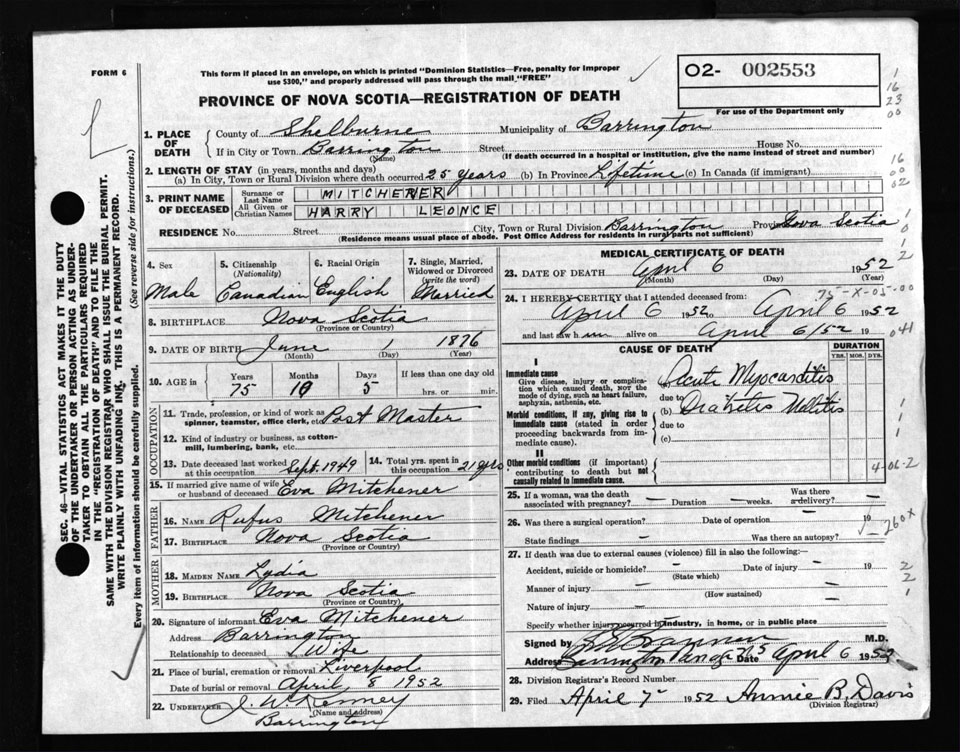 FORM 6
This form if placed in an envelope, on which is printed "Dominion Statistics—Free, penalty for improper
use $300," and properly addressed will pass through the mail "FREE"
PROVINCE OF NOVA SCOTIA—REGISTRATION OF DEATH
O2- 002553
For use of the Department only
SEC. 46—VITAL STATISTICS ACT MAKES IT THE DUTY
OF THE UNDERTAKER OR PERSON ACTING AS UNDER-
TAKER TO OBTAIN ALL THE PARTICULARS REQUIRED
IN THE "REGISTRATION OF DEATH" AND TO FILE THE
SAME WITH THE DIVISION REGISTRAR WHO SHALL ISSUE THE BURIAL PERMIT.
WRITE PLAINLY WITH UNFADING INK. THIS IS A PERMANENT RECORD.
Every item of information should be carefully supplied. (See reverse side for instructions.)
1. PLACE OF DEATH
County of Shelburne Municipality of Barrington
If in City or Town Barrington Street House No.
(Name) (If death occurred in a hospital or institution, give the name instead of street and number)
2. LENGTH OF STAY (in years, months and days)
(a) In City, Town or Rural Division where death occurred 25 years (b) In Province Lifetime (c) In Canada (if immigrant)
3. PRINT NAME OF DECEASED
Surname or Last Name MITCHENER
All Given or Christian Names HARRY LEONCE
RESIDENCE No. Street City, Town or Rural Division Barrington Province Nova Scotia
(Residence means usual place of abode. Post Office Address for residents in rural parts not sufficient)
4. Sex
Male
5. Citizenship
(Nationality)
Canadian
6. Racial Origin
English
7. Single, Married,
Widowed or Divorced
(write the word)
Married
8. BIRTHPLACE Nova Scotia
(Province or Country)
9. DATE OF BIRTH June 1 1876
(Month) (Day) (Year)
10. AGE in Years Months Days If less than one day old
75 10 5 hrs. or min.
OCCUPATION
11. Trade, profession, or kind of work as
spinner, teamster, office clerk, etc. Post Master
12. Kind of industry or business, as cotton-
mill, lumbering, bank, etc.
13. Date deceased last worked
at this occupation Sept. 1949
14. Total yrs. spent in
this occupation 21 yrs
15. If married give name of wife
or husband of deceased Eva Mitchener
FATHER
16. NAME Rufus Mitchener
17. BIRTHPLACE Nova Scotia
(Province or Country)
MOTHER
18. MAIDEN NAME Lydia
19. BIRTHPLACE Nova Scotia
(Province or Country)
20. Signature of informant Eva Mitchener
Address Barrington
Relationship to deceased Wife
21. Place of burial, cremation or removal Liverpool
Date of burial or removal April 8 1952
22. UNDERTAKER J. W.
(Name and address)
Barrington
MEDICAL CERTIFICATE OF DEATH
23. DATE OF DEATH April 6 1952
(Month) (Day) (Year)
24. I HEREBY CERTIFY that I attended deceased from:
75-X-05-00
April 6 1952 to April 6 1952
and last saw h im alive on April 6/52 19
041
CAUSE OF DEATH
DURATION
YRS. MOS. DYS.
I
Immediate cause
Give disease, injury or complica-
tion which caused death, NOT the
mode of dying, such as heart failure,
asphyxia, asthenia, etc.
Acute Myocarditis
due to
Morbid conditions, if any, giving rise to
immediate cause (stated in order
proceeding backwards from im-
mediate cause).
(b) Diabetis Mellitis
due to
(c)
II
Other morbid conditions (if important)
contributing to death but NOT
causally related to immediate cause.
4-06-2
25. If a woman, was the death
associated with pregnancy? — Duration — weeks. Was there
a delivery? —
26. Was there a surgical operation? — Date of operation — 19
State findings — Was there an autopsy?
260X
27. If death was due to external causes (violence) fill in also the following:—
Accident, suicide or homicide? — Date of injury — 19
(State which)
Manner of injury —
(How sustained)
Nature of injury —
Specify whether injury occurred in industry, in home, or in public place
Signed by M.D.
Address Barrington Passage N.S Date April 6 1952
28. Division Registrar's Record Number
29. Filed April 7 1952 Annie B. Davis
(Division Registrar)